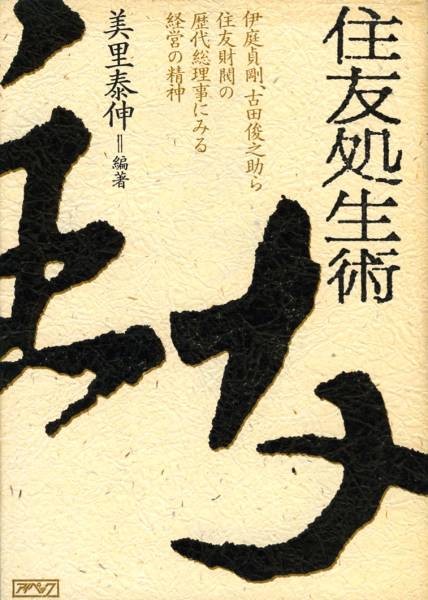 住友処生術
伊庭貞剛、古田俊之助ら
住友財閥の
歴代総理事にみる
経営の精神
美里泰伸＝編著
アイペック